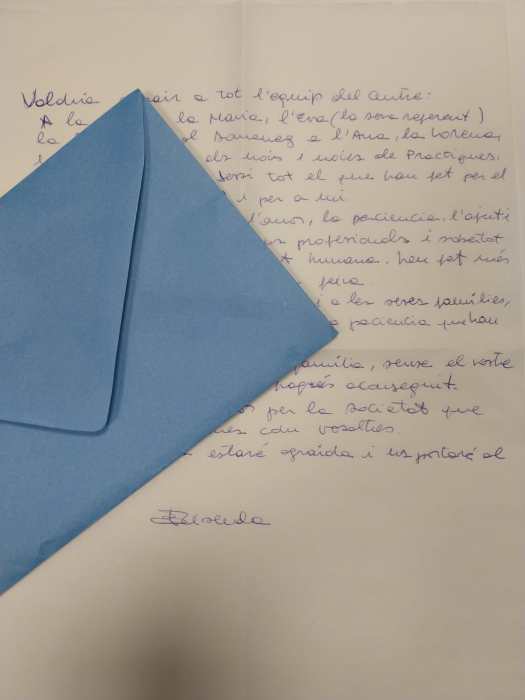 Voldria a tot l'equip del Centre:
A la la Maria, l'Eva (la seva referent)
la a l'Ana, la Lorena,
els nois i noies de Practiques.
tot el que han fet per el
i per a mi
l'amor, la paciencia, l'ajut i
profesionals i sobretot
humana. heu fet més
feina.
i a les seves families,
paciencia que hau
familia, sense el vostre
hagués aconseguit.
per la societat que
com vosaltres.
estaré agraida i us portaré al